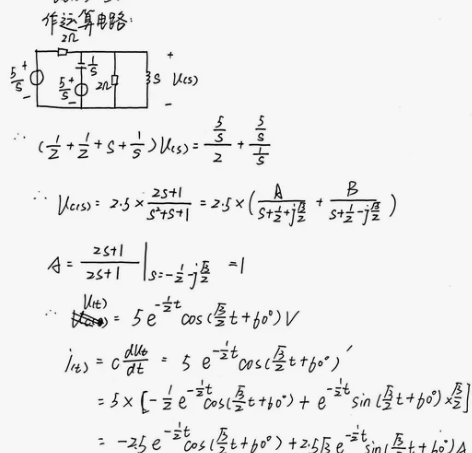 作运算电路:
2Ω
5/s + − 1/s 5/s + − 2Ω s + U(s) −
∴ (1/2 + 1/2 + s + 1/s) U(s) = (5/s)/2 + (5/s)/(1/s)
∴ Uc(s) = 2.5 × (2s+1)/(s²+s+1) = 2.5 × (A/(s+1/2+j√3/2) + B/(s+1/2−j√3/2))
A = (2s+1)/(2s+1) |s=−1/2−j√3/2 = 1
∴ U(t) = 5e^(−1/2 t) cos(√3/2 t + 60°) V
i(t) = C du(t)/dt = 5 e^(−1/2 t) cos(√3/2 t + 60°)′
= 5 × [−1/2 e^(−1/2 t) cos(√3/2 t + 60°) + e^(−1/2 t) sin(√3/2 t + 60°) × √3/2]
= −2.5 e^(−1/2 t) cos(√3/2 t + 60°) + 2.5√3 e^(−1/2 t) sin(√3/2 t + 60°) A